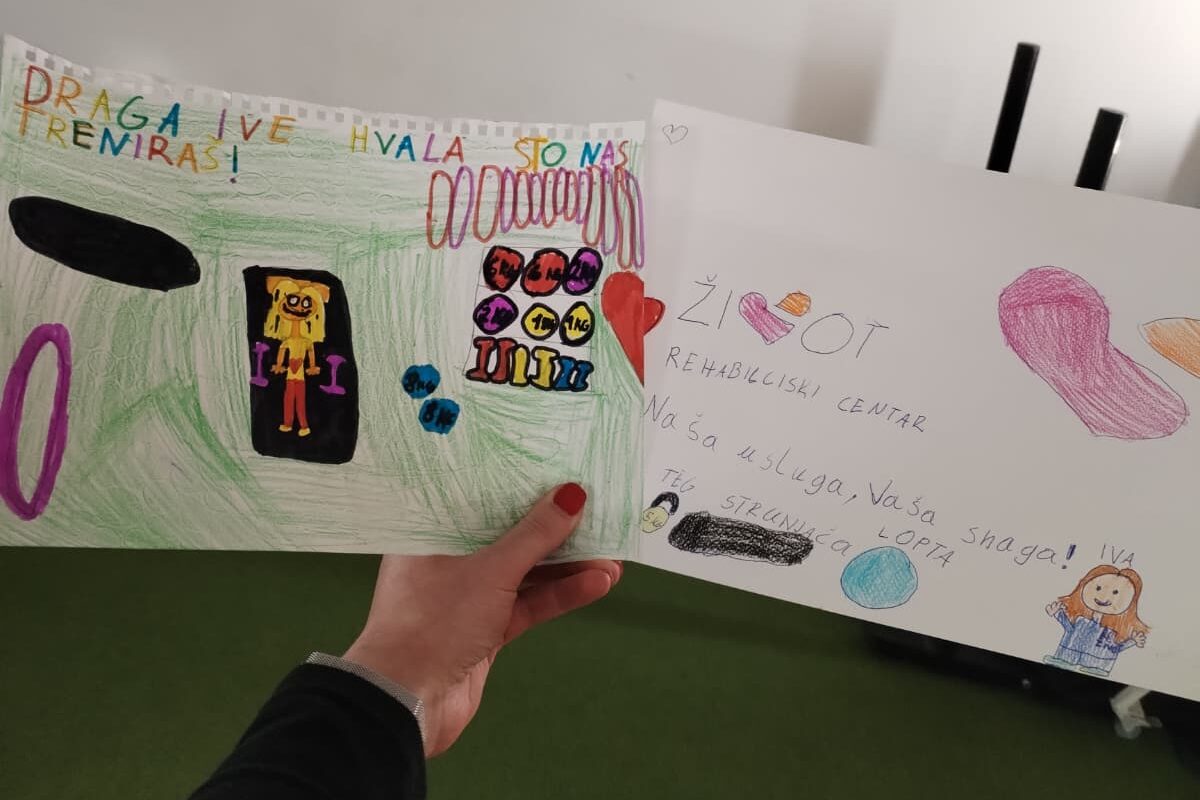 DRAGA IVE HVALA ŠTO NAS
TRENIRAŠ!
5KG 6KG 2KG
2KG 1KG 1KG
8KG
8KG
ŽIVOT
REHABILCISKI CENTAR
Naša usluga, Vaša snaga!
TEG STRUNJAČA LOPTA
5KG
IVA